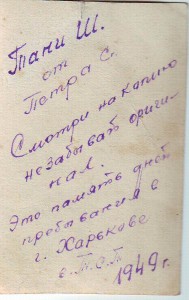 Тани Ш.
от
Петра С.
Смотри на капию
незабывай ориги-
нал.
Это память дней
пребывания в
г. Харькове
в Т.С.Т
1949 г.